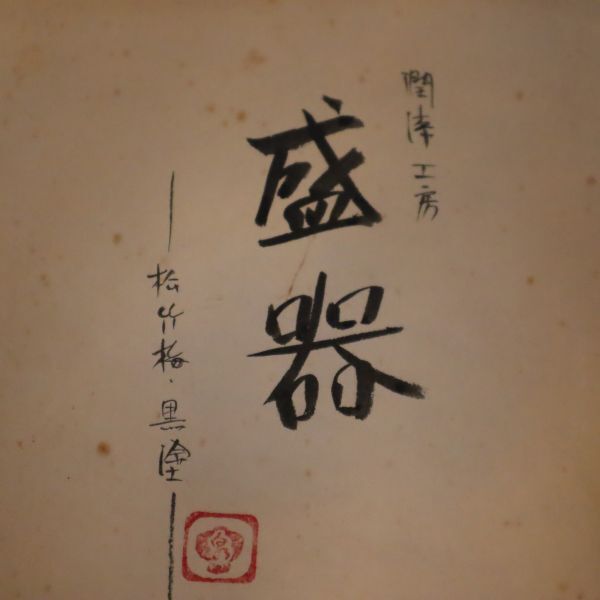 潤漆工房
盛器
松竹梅・黒塗